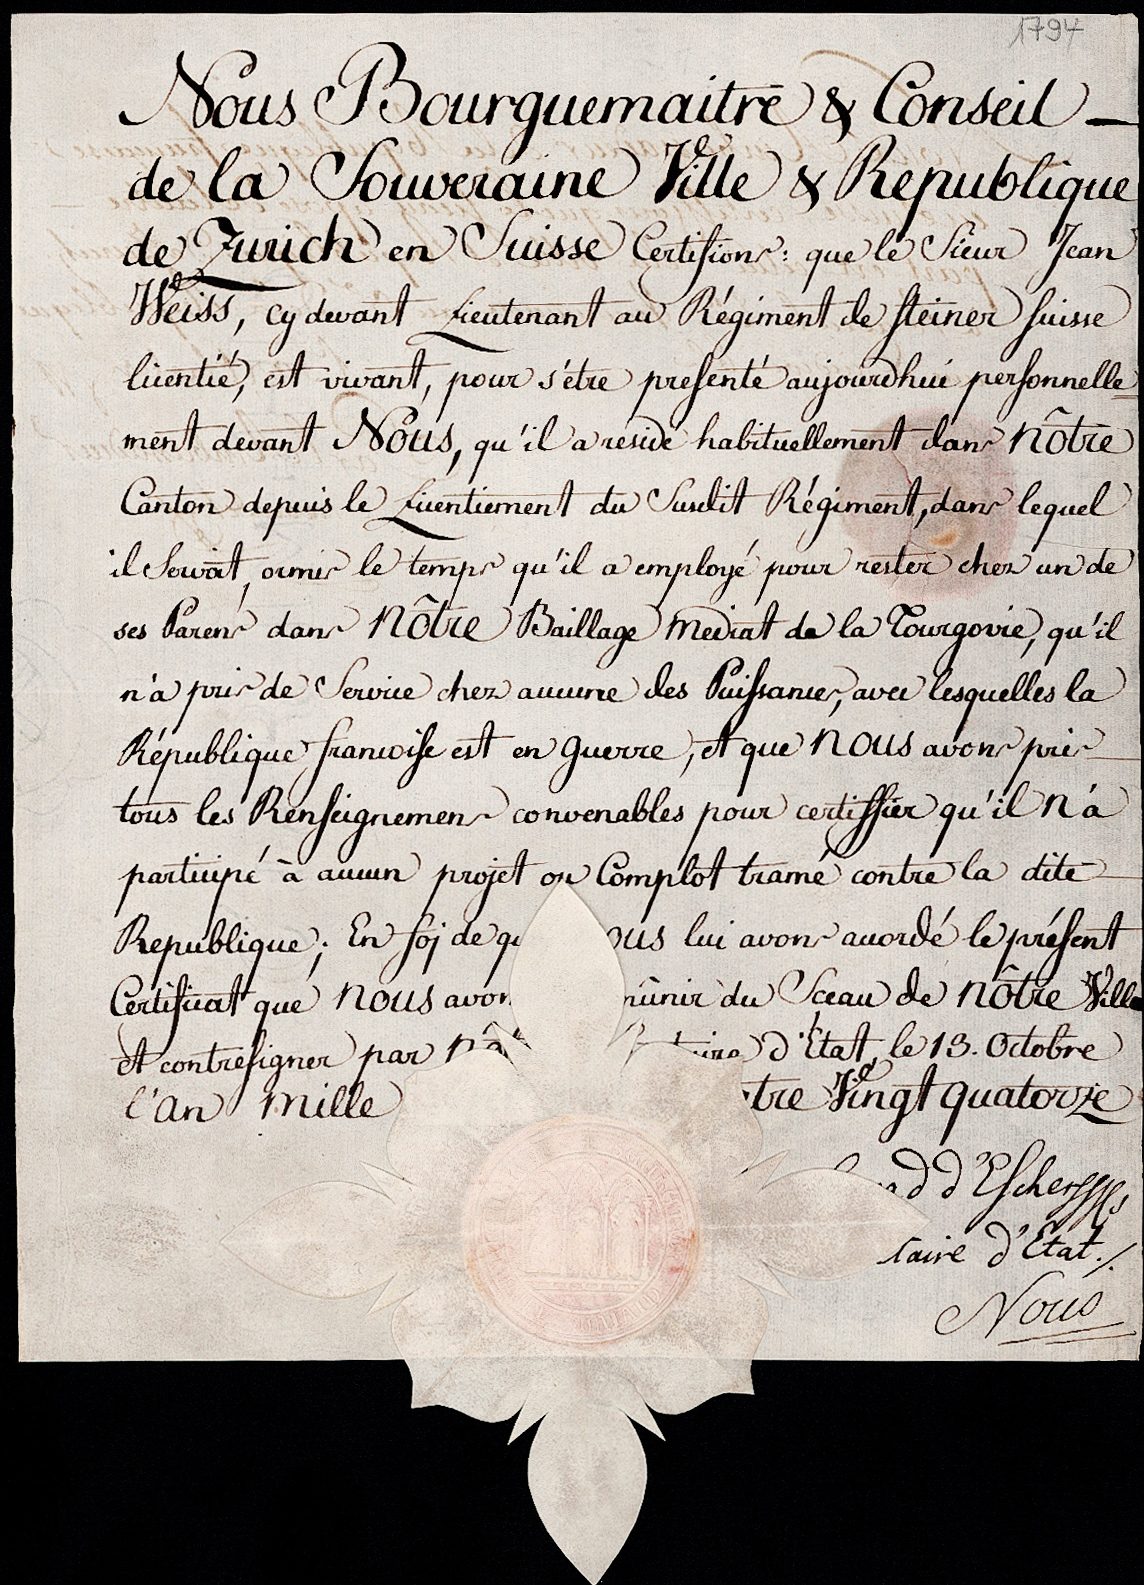 1794
Nous Bourguemaitre & Conseil
de la Souveraine Ville & Republique
de Zurich en Suisse Certifions: que le Sieur Jean
Weiss, cy devant Lieutenant au Régiment de Steiner Suisse
licentié, est vivant, pour s'étre presenté aujourdhui personnelle
ment devant Nous, qu'il a residé habituellement dans nôtre
Canton depuis le Licentiement du Susdit Régiment, dans lequel
il Servoit, ormis le temps qu'il a employé pour rester chez un de
ses Parens dans nôtre Baillage mediat de la Tourgovie, qu'il
n'a pris de Service chez aucune des Puissances, avec lesquelles la
République françoise est en guerre, et que nous avons pris
tous les Renseignemens convenables pour certiffier qu'il n'a
participé à aucun projet ou Complot tramé contre la dite
Republique; En foj de qu ous lui avons accordé le présent
Certificat que nous avon mûnir du Sceau de nôtre Ville
et contresigner par nô taire d'Etat, le 13. Octobre
l'an mille tre Vingt quatorze
d d'Escher
taire d'Etat./.
Nous